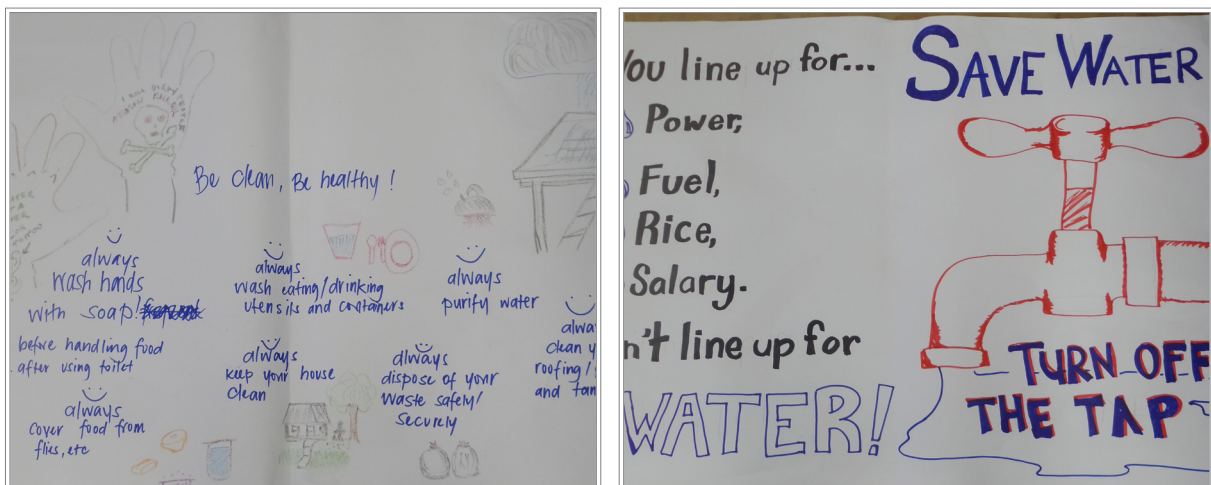 Be clean, Be healthy!
always
wash hands
with soap!
before handling food
after using toilet
always
cover food from
flies, etc
always
wash eating/drinking
utensils and containers
always
keep your house
clean
always
purify water
always
dispose of your
waste safely/
securely
alwa
clean y
roofing/
and tan
You line up for...
Power,
Fuel,
Rice,
Salary.
n't line up for
WATER!
SAVE WATER
TURN OFF
THE TAP